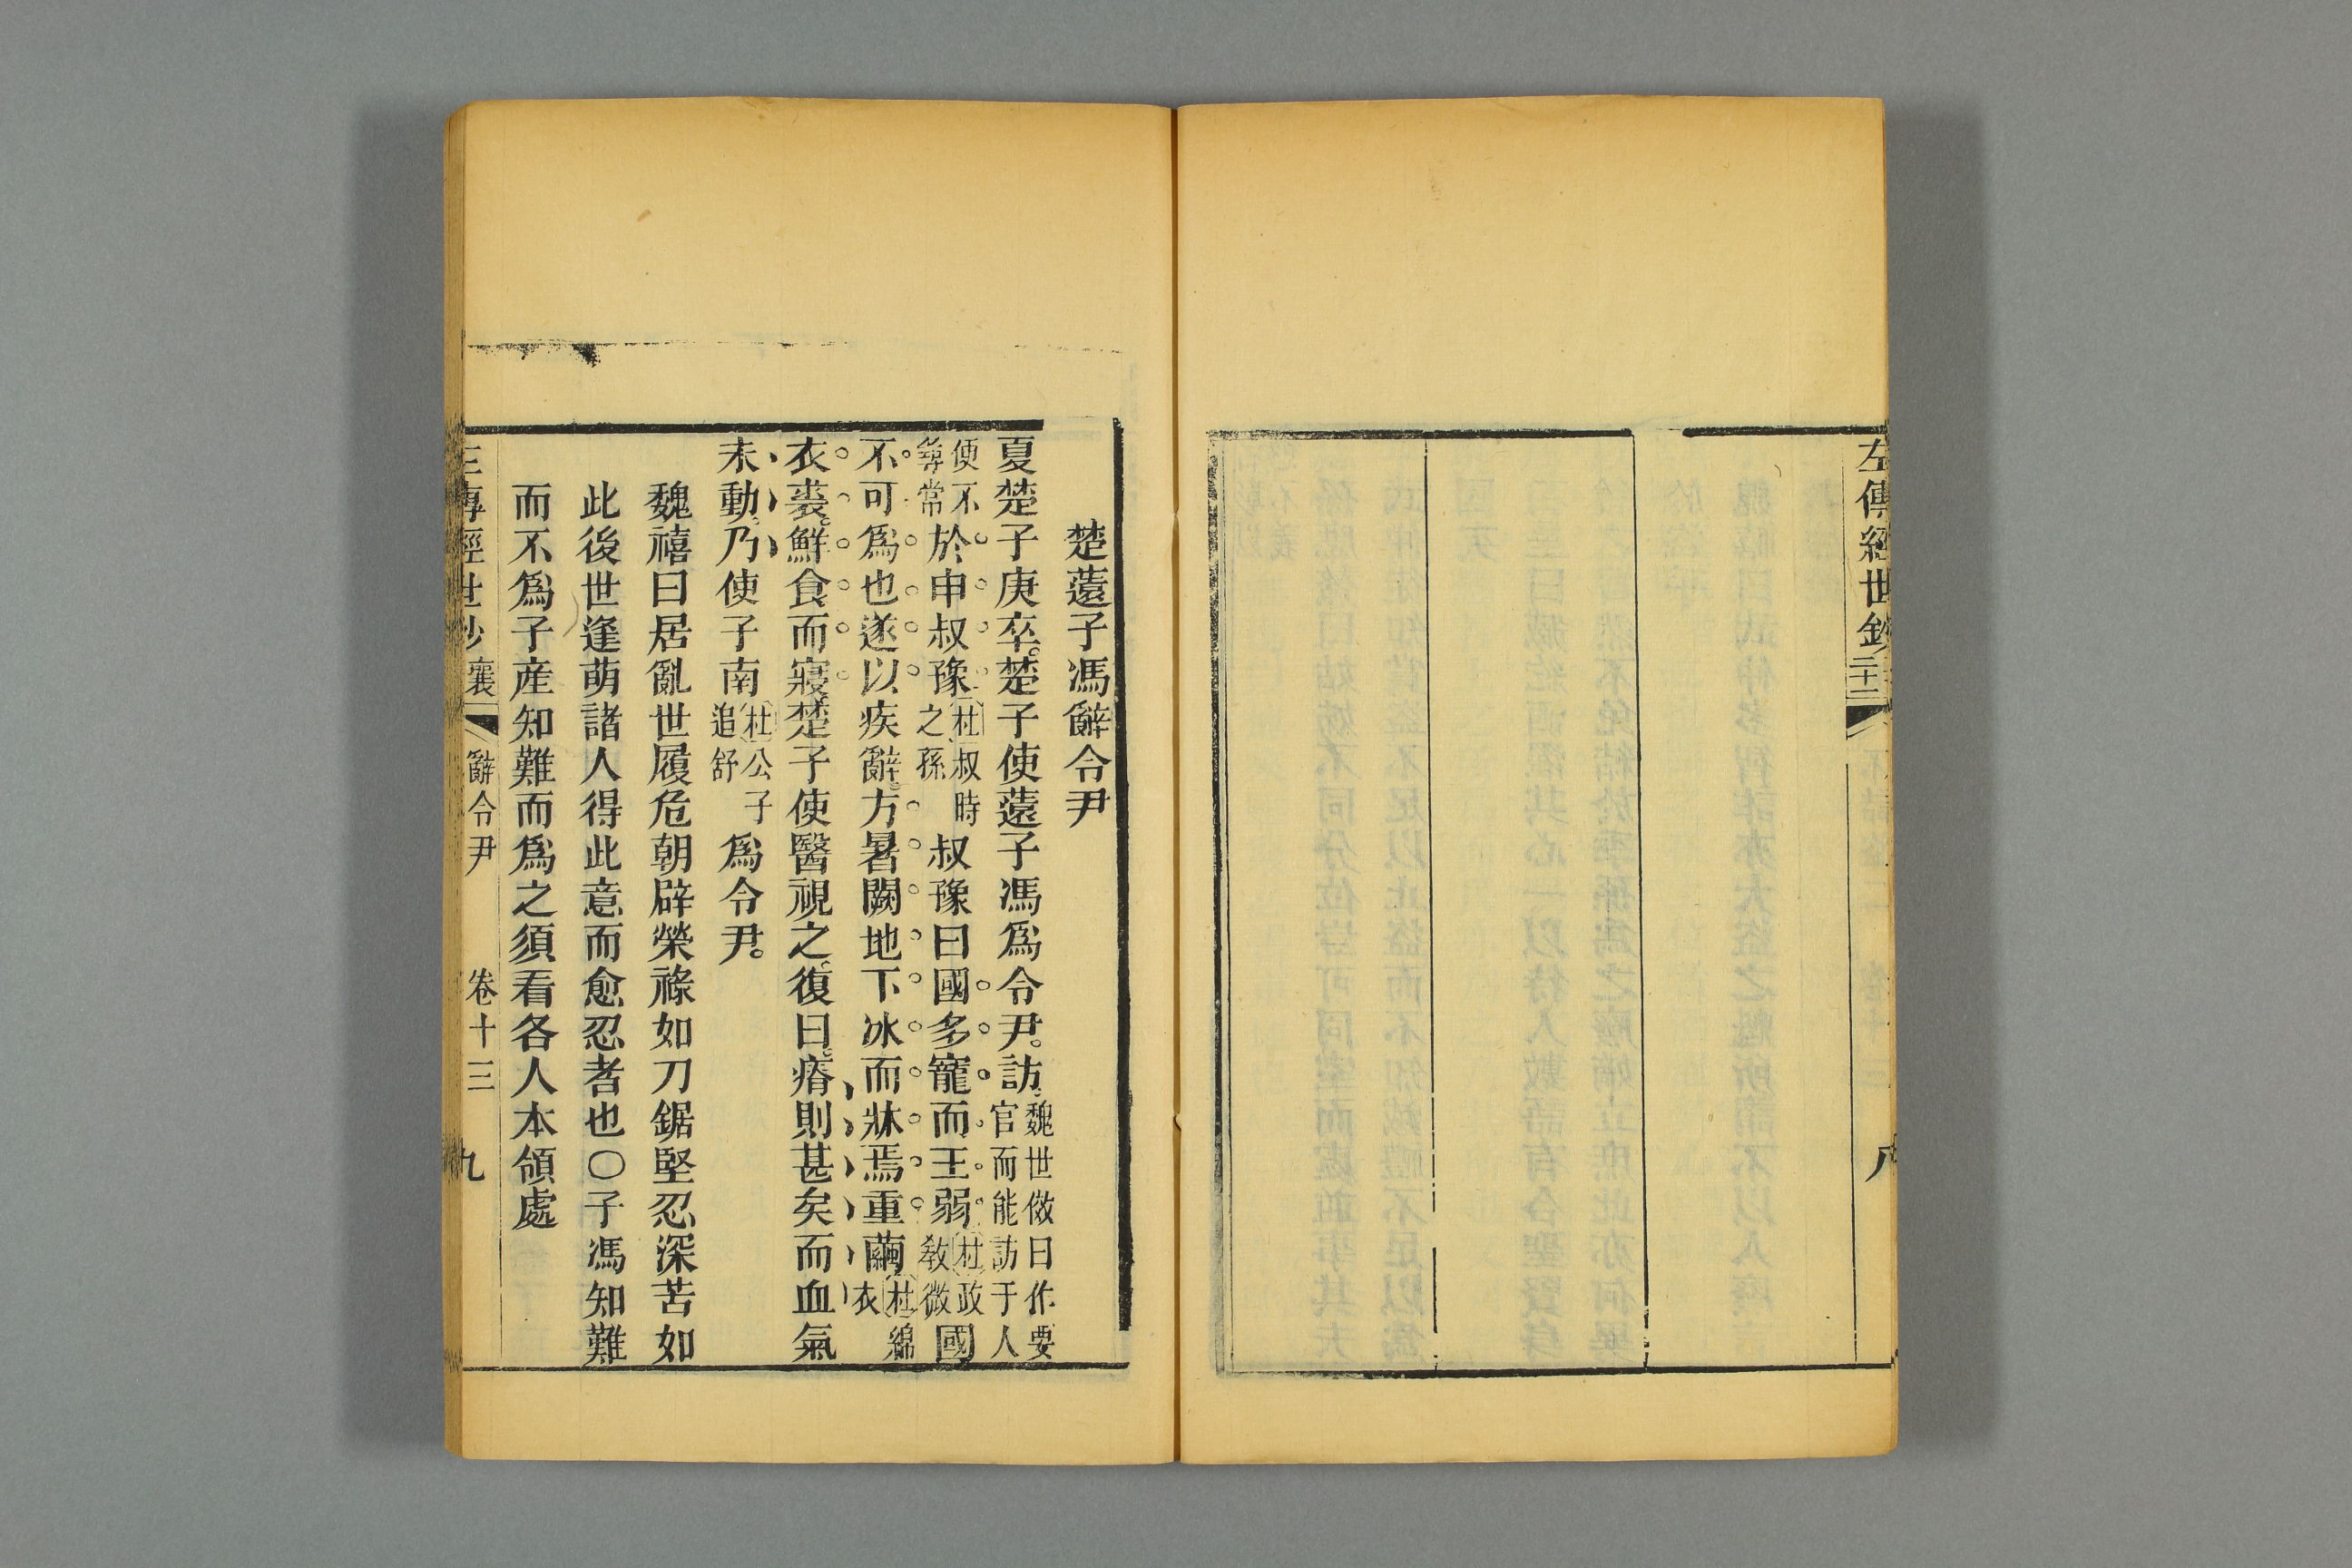 左傳經世鈔
二十二
八
楚薳子馮辭令尹
夏楚子庚卒楚子使薳子馮爲令尹訪魏世傚曰作要官而能訪于人
便不尋常於申叔豫杜叔時之孫叔豫曰國多寵而王弱杜政敎微國
不可爲也遂以疾辭方暑闕地下冰而牀焉重繭杜綿衣
衣裘鮮食而寢楚子使醫視之復曰瘠則甚矣而血氣
未動乃使子南杜公子追舒爲令尹
魏禧曰居亂世履危朝辟榮祿如刀鋸堅忍深苦如
此後世逢萌諸人得此意而愈忍者也〇子馮知難
而不爲子產知難而爲之須看各人本領處
左傳經世鈔 襄 辭令尹 卷十三 九